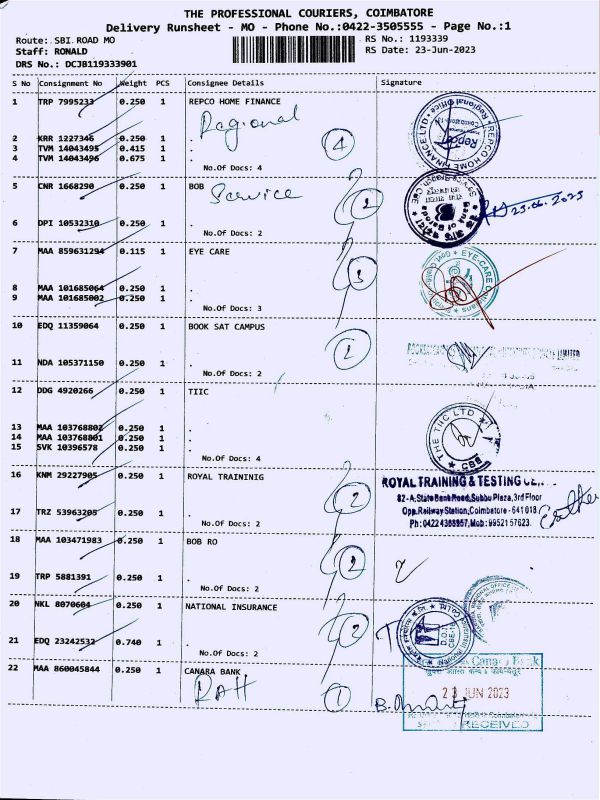 THE PROFESSIONAL COURIERS, COIMBATORE
Delivery Runsheet - MO - Phone No.:0422-3505555 - Page No.:1
Route: SBI ROAD MO
RS No.: 1193339
Staff: RONALD
RS Date: 23-Jun-2023
DRS No.: DCJB119333901
S No Consignment No Weight PCS Consignee Details Signature
1 TRP 7995233 0.250 1 REPCO HOME FINANCE
Regional
2 KRR 1227346 0.250 1 .
3 TVM 14043495 0.415 1 .
4 TVM 14043496 0.675 1 .
4
No.Of Docs: 4
REPCO HOME FINANCE LTD
Regional Office
Repco
5 CNR 1668290 0.250 1 BOB
Service
2
6 DPI 10532310 0.250 1 .
No.Of Docs: 2
Bank of Baroda
23.06.2023
7 MAA 859631294 0.115 1 EYE CARE
3
8 MAA 101685064 0.250 1 .
9 MAA 101685002 0.250 1 .
No.Of Docs: 3
EYE-CARE
10 EDQ 11359064 0.250 1 BOOK SAT CAMPUS
2
11 NDA 105371150 0.250 1 .
No.Of Docs: 2
LIMITED
12 DDG 4920266 0.250 1 TIIC
13 MAA 103768802 0.250 1 .
14 MAA 103768801 0.250 1 .
15 SVK 10396578 0.250 1 .
No.Of Docs: 4
THE TIIC LTD
CBE
16 KNM 29227905 0.250 1 ROYAL TRAININIG
2
17 TRZ 53963205 0.250 1 .
No.Of Docs: 2
ROYAL TRAINING & TESTING
82-A, State Bank Road, Subbu Plaza, 3rd Floor
Opp. Railway Station, Coimbatore - 641 018.
Ph: 0422 4368957, Mob: 9952157623
18 MAA 103471983 0.250 1 BOB RO
2
19 TRP 5881391 0.250 1 .
No.Of Docs: 2
20 NKL 8070604 0.250 1 NATIONAL INSURANCE
2
21 EDQ 23242532 0.740 1 .
No.Of Docs: 2
22 MAA 860045844 0.250 1 CANARA BANK
1
Canara Bank
23 JUN 2023
RECEIVED